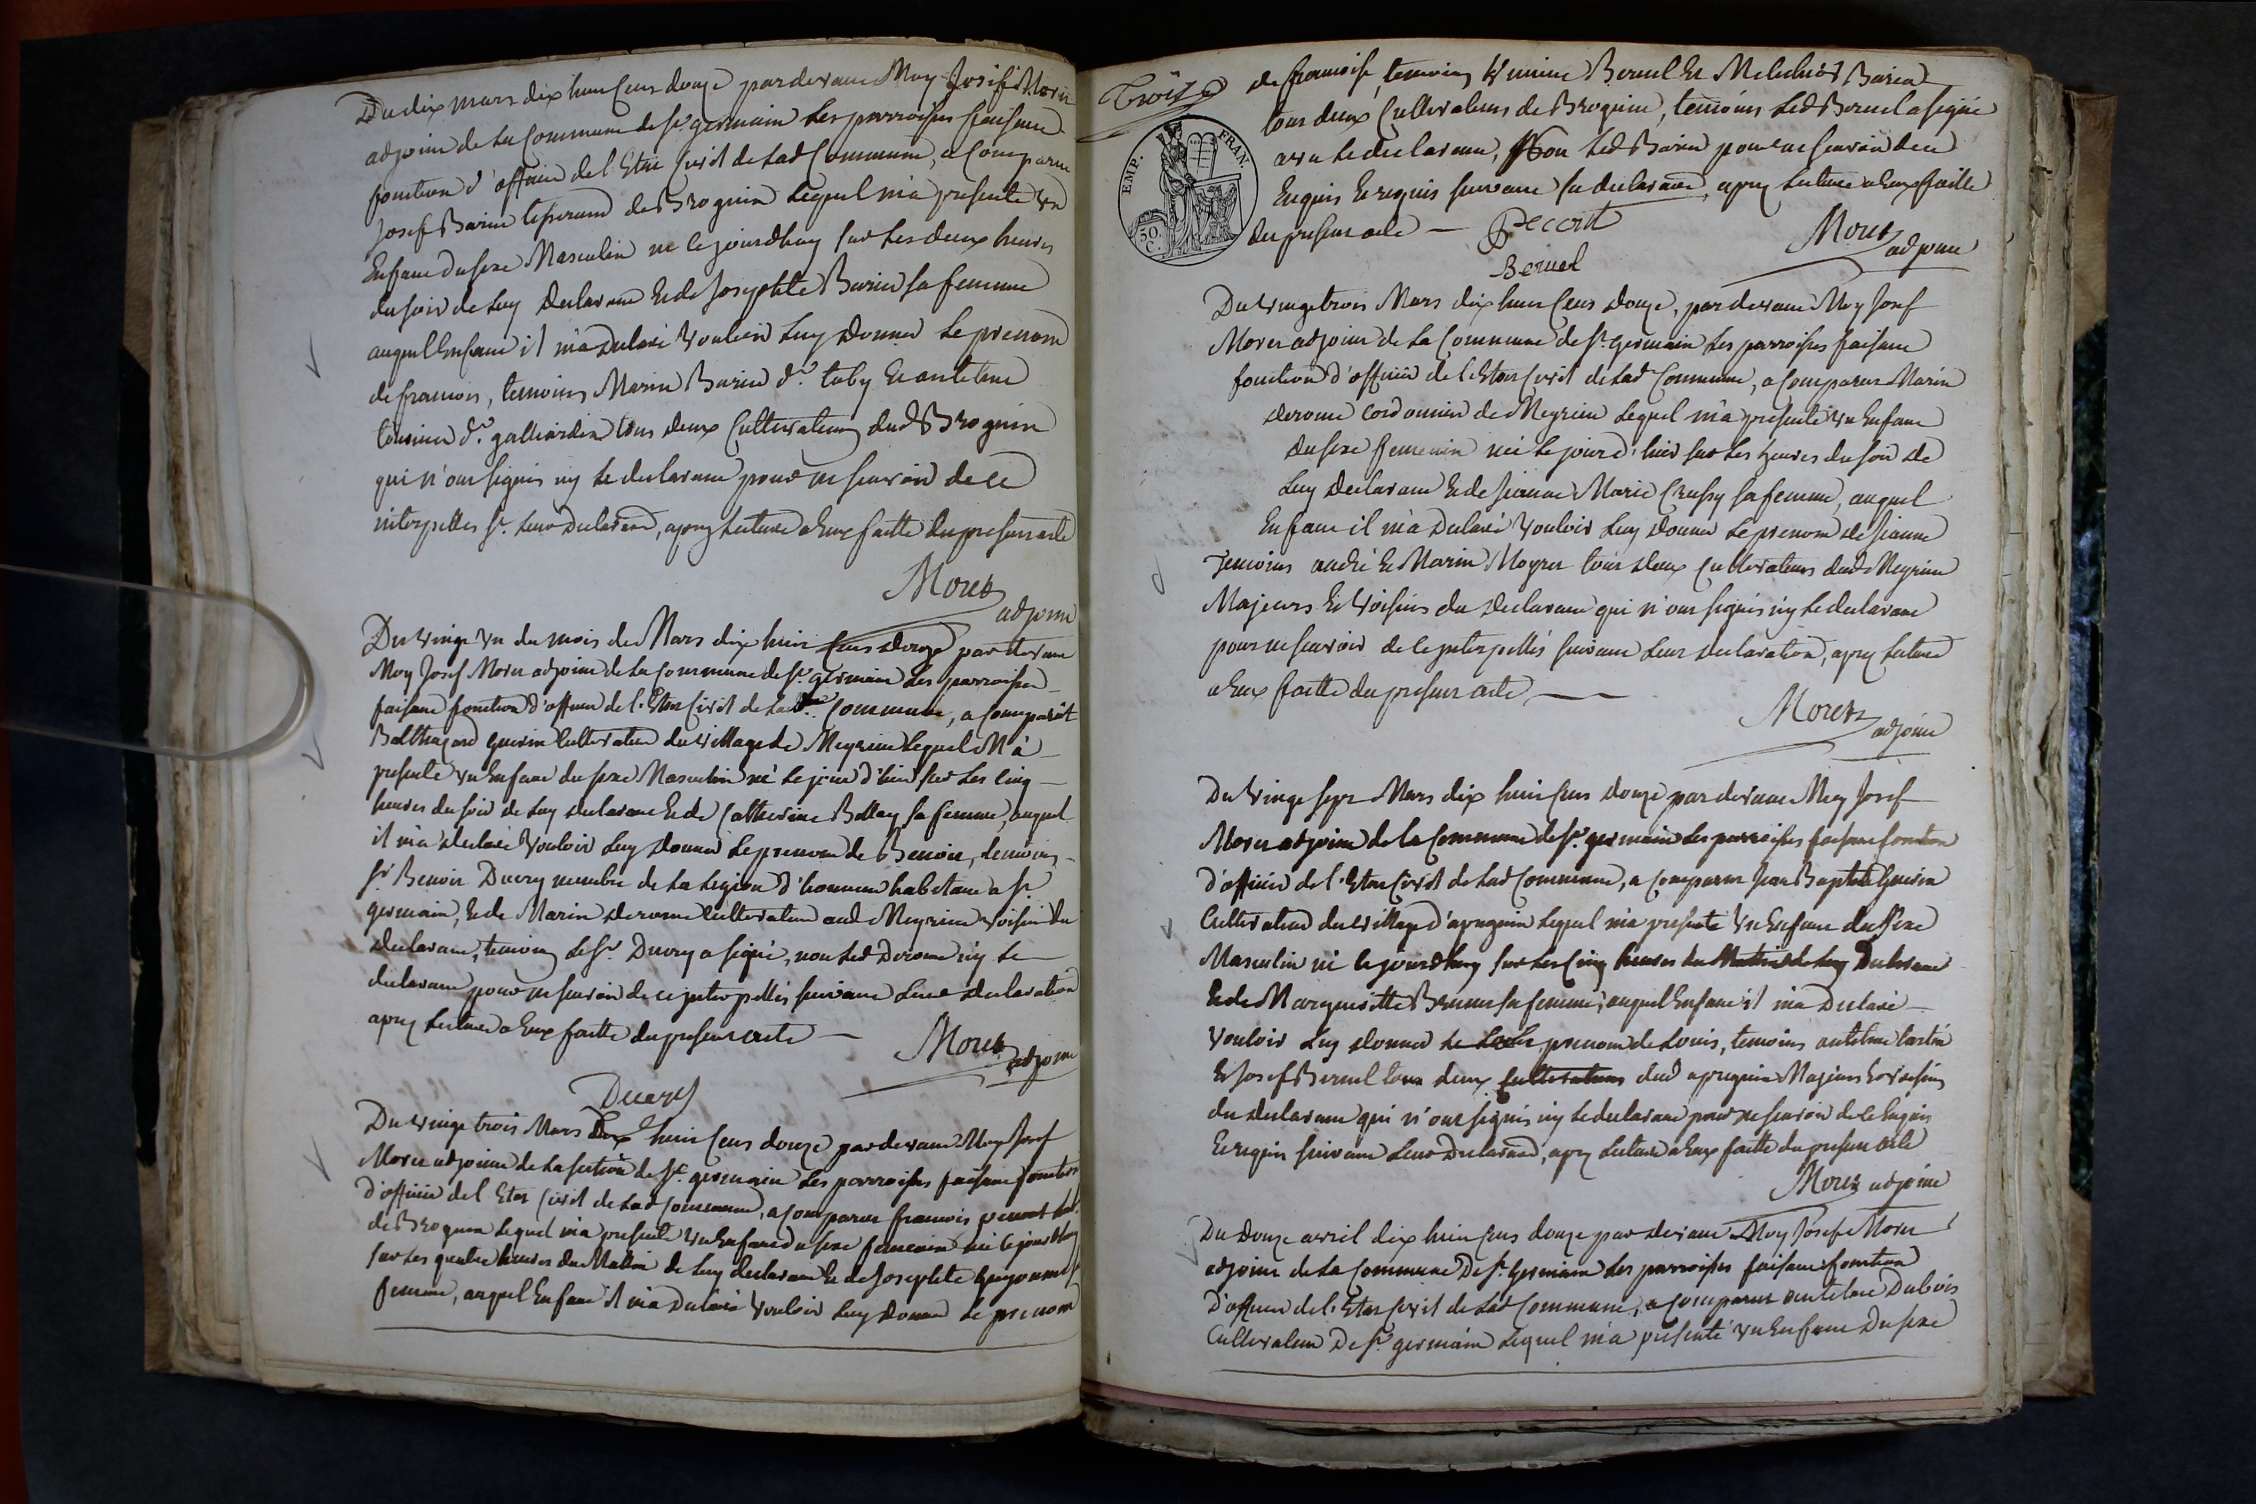 Du dix mars dix huit cens douze par devant Moy Josef Moret
adjoint de la commune de St germain les parroisses faisant
fonction d'officier de l'Etat Civil de lad Commune, a comparu
Josef Barin de Brognin lequel m'a presenté un
Enfant du sexe Masculin né le jourdhuy sur les deux heures
du soir de luy declarant et de Josephte Burier sa femme
auquel Enfant il m'a declaré vouloir luy donner le prenom
de francois, temoins Marin Burier dt tuby et antelme
dt galliardin tous deux Cultivateurs dud Brognin
qui n'ont signés ny le declarant pour ne scavoir de ce
interpellés st leur declarand, aprez lecture a Eux faitte du present acte
Moret
adjoint
Du vingt un du mois de Mars dix huit cens douze par devant
Moy Josef Moret adjoint de la commune de St germain les parroisses
faisant fonction d'officier de l'Etat Civil de ladte Commune, a comparût
Balthazard guerin Cultivateur du village de Meyrieu lequel M'à
presenté un Enfant du sexe Masculin né le jour d'hier sur les cinq
heures du soir de luy declarant et de Catherine Bollay sa femme, auquel
il m'a declaré vouloir luy donner le prenom de Benoit, temoins
Sr Benoit Ducrey membre de la legion d'honneur habitant a St
germain, et de Marin derome Cultivateur aud Meyrieu voisin du
declarant, temoins le Sr Ducrey a signé, non led Derome ny le
declarant pour ne scavoir de ce jnterpellés suivant leur declaration
aprez lecture a Eux faitte du present acte —
Moret
adjoint
Ducrey
Du vingt trois Mars Dix huit cens douze par devant Moy Josef
Moret adjoint de la section de St germain les parroisses faisant fonction
d'officier de l'Etat Civil de lad Commune, a comparut francois
de Brognin lequel m'a presenté un Enfant du sexe femenin né le jourdhuy
sur les quatre heures du Matin de luy declarant et de Josephte Guyonnet sa
femme, auquel Enfant il m'a declaré vouloir luy donner le prenom
Trois
EMP. FRAN.
50.
C.
de francoise, temoins Bernel et Melchiot Barin
tous deux Cultivateurs de Brognin, temoins led Bernel a signé
avec le declarant, Non led Barin pour ne scavoir de ce
Enquis et requis suivant sa declarand, aprez lecture a Eux faitte
du present acte — Pecout
Moret
adjoint
Bernel
Du vingt trois Mars dix huit cens douze, par devant Moy Josef
Moret adjoint de la Commune de St germain les parroisses faisant
fonction d'officier de l'Etat Civil de lad Commune, a comparut Marin
derome cordonnier de Meyrieu lequel m'a presenté un Enfant
du sexe femenin né le jour d'hier sur les heures du soir de
luy declarant et de jeanne Marie Crussy sa femme, auquel
Enfant il m'a declaré vouloir luy donner le prenom de jeanne
Temoins andré et Marin Moyret tous deux Cultivateurs dud Meyrieu
Majeurs et voisins du declarant qui n'ont signés ny le declarant
pour ne scavoir de ce jnterpellés suivant leur declaration, aprez lecture
a Eux faitte du present acte —
Moret
adjoint
Du vingt sept Mars dix huit cens douze par devant Moy Josef
Moret adjoint de la Commune de St germain les parroisses faisant fonction
d'officier de l'Etat Civil de lad Commune, a comparut Jean Baptiste Guerin
Cultivateur du village d'apregnin lequel m'a presenté un Enfant du sexe
Masculin né le jourdhuy sur les cinq heures du Matin de luy Declarant
et de Marguerittte Brunet sa femme, auquel Enfant il m'a Declaré
vouloir luy donner le prenom de Louis, temoins antelme
Et Josef Bernel tous deux Cultivateurs dud apregnin Majeurs et voisins
du declarant qui n'ont signés ny le declarant pour ne scavoir de ce Enquis
Et requis suivant leur Declarand, aprez lecture a Eux faitte du present acte
Moret adjoint
Du Douze avril dix huit cens douze par devant Moy Josef Moret
adjoint de la Commune De St Germain les parroisses faisant fonction
d'officier de l'Etat Civil de lad Commune, a comparut antelme Dubois
Cultivateur De St germain lequel m'a presenté un Enfant Du sexe